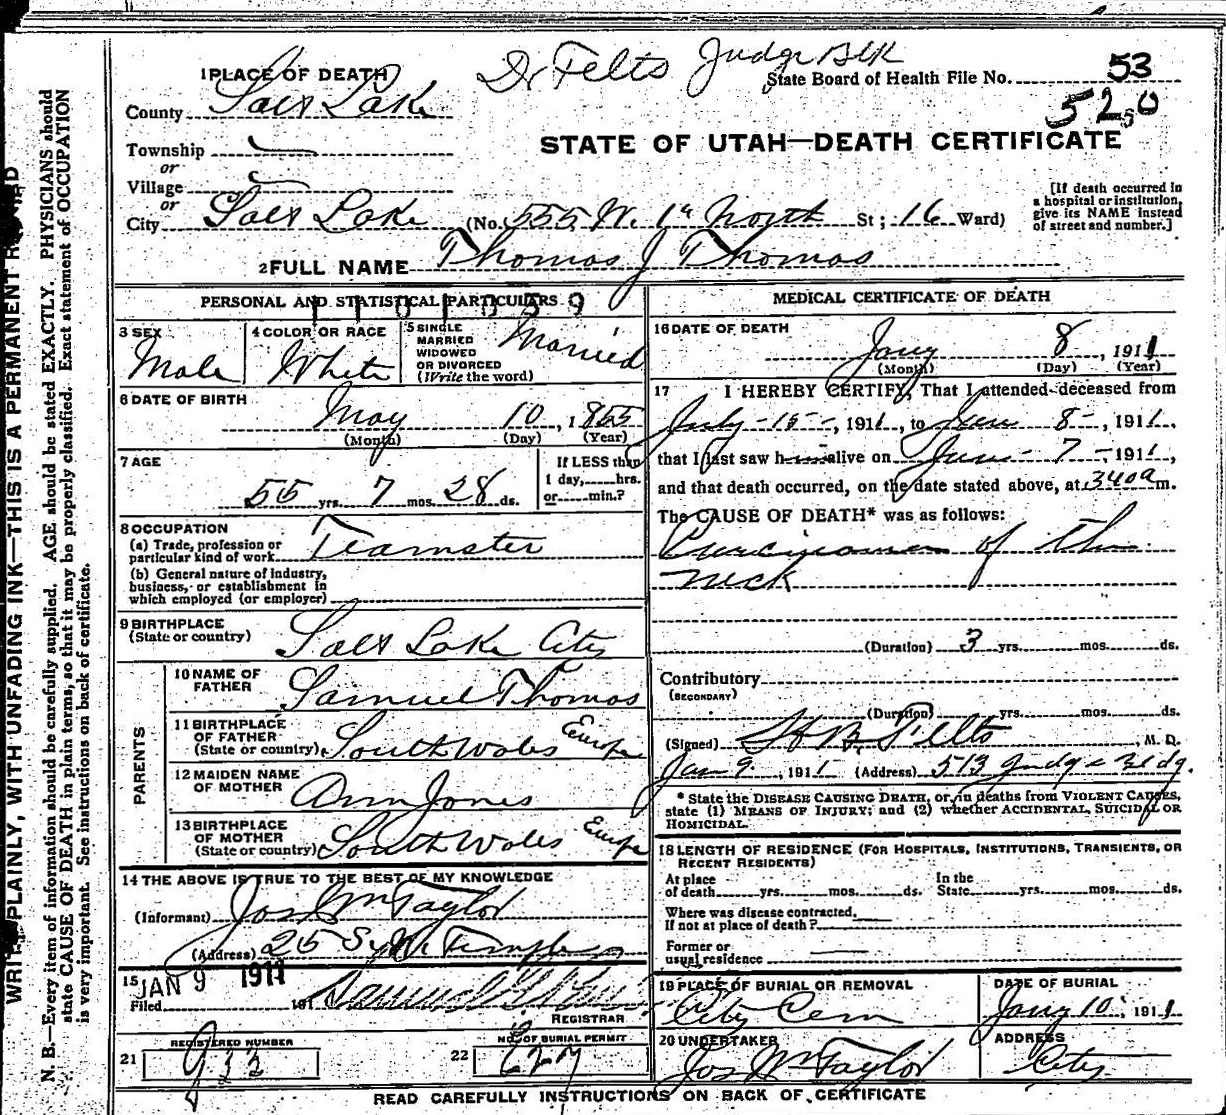 Dr Felts Judge Blk
1 PLACE OF DEATH
State Board of Health File No. 53
County Salt Lake
5250
Township
or
STATE OF UTAH—DEATH CERTIFICATE
Village
or
City Salt Lake (No. 555 W. 1st North St; 16 Ward)
[If death occurred in
a hospital or institution,
give its NAME instead
of street and number.]
2 FULL NAME Thomas J Thomas
PERSONAL AND STATISTICAL PARTICULARS
3 SEX
Male
4 COLOR OR RACE
White
5 SINGLE
MARRIED
WIDOWED
OR DIVORCED
(Write the word)
Married
6 DATE OF BIRTH
May 10, 1855
(Month) (Day) (Year)
7 AGE
55 yrs. 7 mos. 28 ds.
If LESS than
1 day, hrs.
or min.?
8 OCCUPATION
(a) Trade, profession or
particular kind of work Teamster
(b) General nature of industry,
business, or establishment in
which employed (or employer)
9 BIRTHPLACE
(State or country) Salt Lake City
PARENTS
10 NAME OF
FATHER Samuel Thomas
11 BIRTHPLACE
OF FATHER
(State or country) South Wales Europe
12 MAIDEN NAME
OF MOTHER Ann Jones
13 BIRTHPLACE
OF MOTHER
(State or country) South Wales Europe
14 THE ABOVE IS TRUE TO THE BEST OF MY KNOWLEDGE
(Informant) Jos Wm Taylor
(Address) 25 So W Temple
15 JAN 9 1911
Filed 191
REGISTRAR
REGISTERED NUMBER
21 933
NO. OF BURIAL PERMIT
22 627
MEDICAL CERTIFICATE OF DEATH
16 DATE OF DEATH
Jany 8, 1911
(Month) (Day) (Year)
17 I HEREBY CERTIFY, That I attended deceased from
July 15 - , 1911, to Jan 8 - , 1911,
that I last saw him alive on Jan 7 - 1911,
and that death occurred, on the date stated above, at 340 a m.
The CAUSE OF DEATH* was as follows:
Carcinoma of the
neck
(Duration) 3 yrs. mos. ds.
Contributory
(SECONDARY)
(Duration) yrs. mos. ds.
(Signed) Felts M. D.
Jan 9, 1911 (Address) 513 Judge Bldg.
* State the DISEASE CAUSING DEATH, or, in deaths from VIOLENT CAUSES,
state (1) MEANS OF INJURY; and (2) whether ACCIDENTAL, SUICIDAL OR
HOMICIDAL.
18 LENGTH OF RESIDENCE (FOR HOSPITALS, INSTITUTIONS, TRANSIENTS, OR
RECENT RESIDENTS)
At place
of death yrs. mos. ds.
In the
State yrs. mos. ds.
Where was disease contracted,
If not at place of death?
Former or
usual residence
19 PLACE OF BURIAL OR REMOVAL
City Cem
DATE OF BURIAL
Jany 10, 1911
20 UNDERTAKER
Jos Wm Taylor
ADDRESS
City
READ CAREFULLY INSTRUCTIONS ON BACK OF CERTIFICATE
WRITE PLAINLY, WITH UNFADING INK—THIS IS A PERMANENT RECORD
N. B.—Every item of information should be carefully supplied. AGE should be stated EXACTLY. PHYSICIANS should
state CAUSE OF DEATH in plain terms, so that it may be properly classified. Exact statement of OCCUPATION
is very important. See instructions on back of certificate.